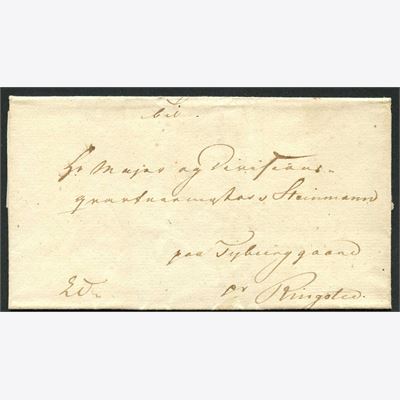 Til
Hr Major og Divisions-
quarteermester Steinmann
paa Tyberggaard
pr Ringsted.